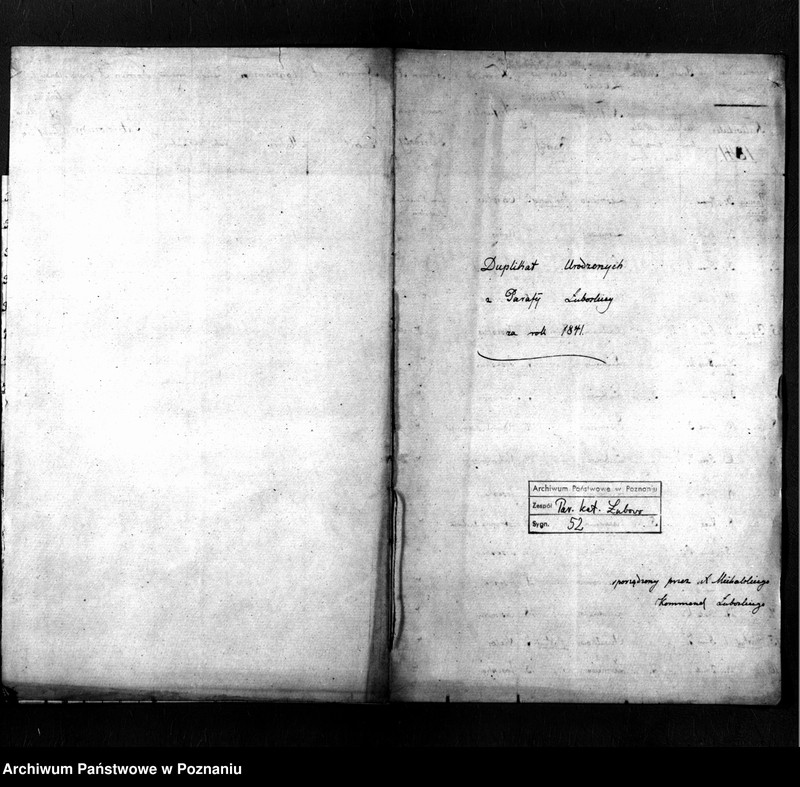 1841
Duplikat Urodzonych
z Parafij Łuboskiey
za rok 1841.
Archiwum Państwowe w Poznaniu
Zespół Par. kat. Łubowo
Sygn. 52
sporządzony przez X. Michalskiego
Kommend Łuboskiego
Archiwum Państwowe w Poznaniu